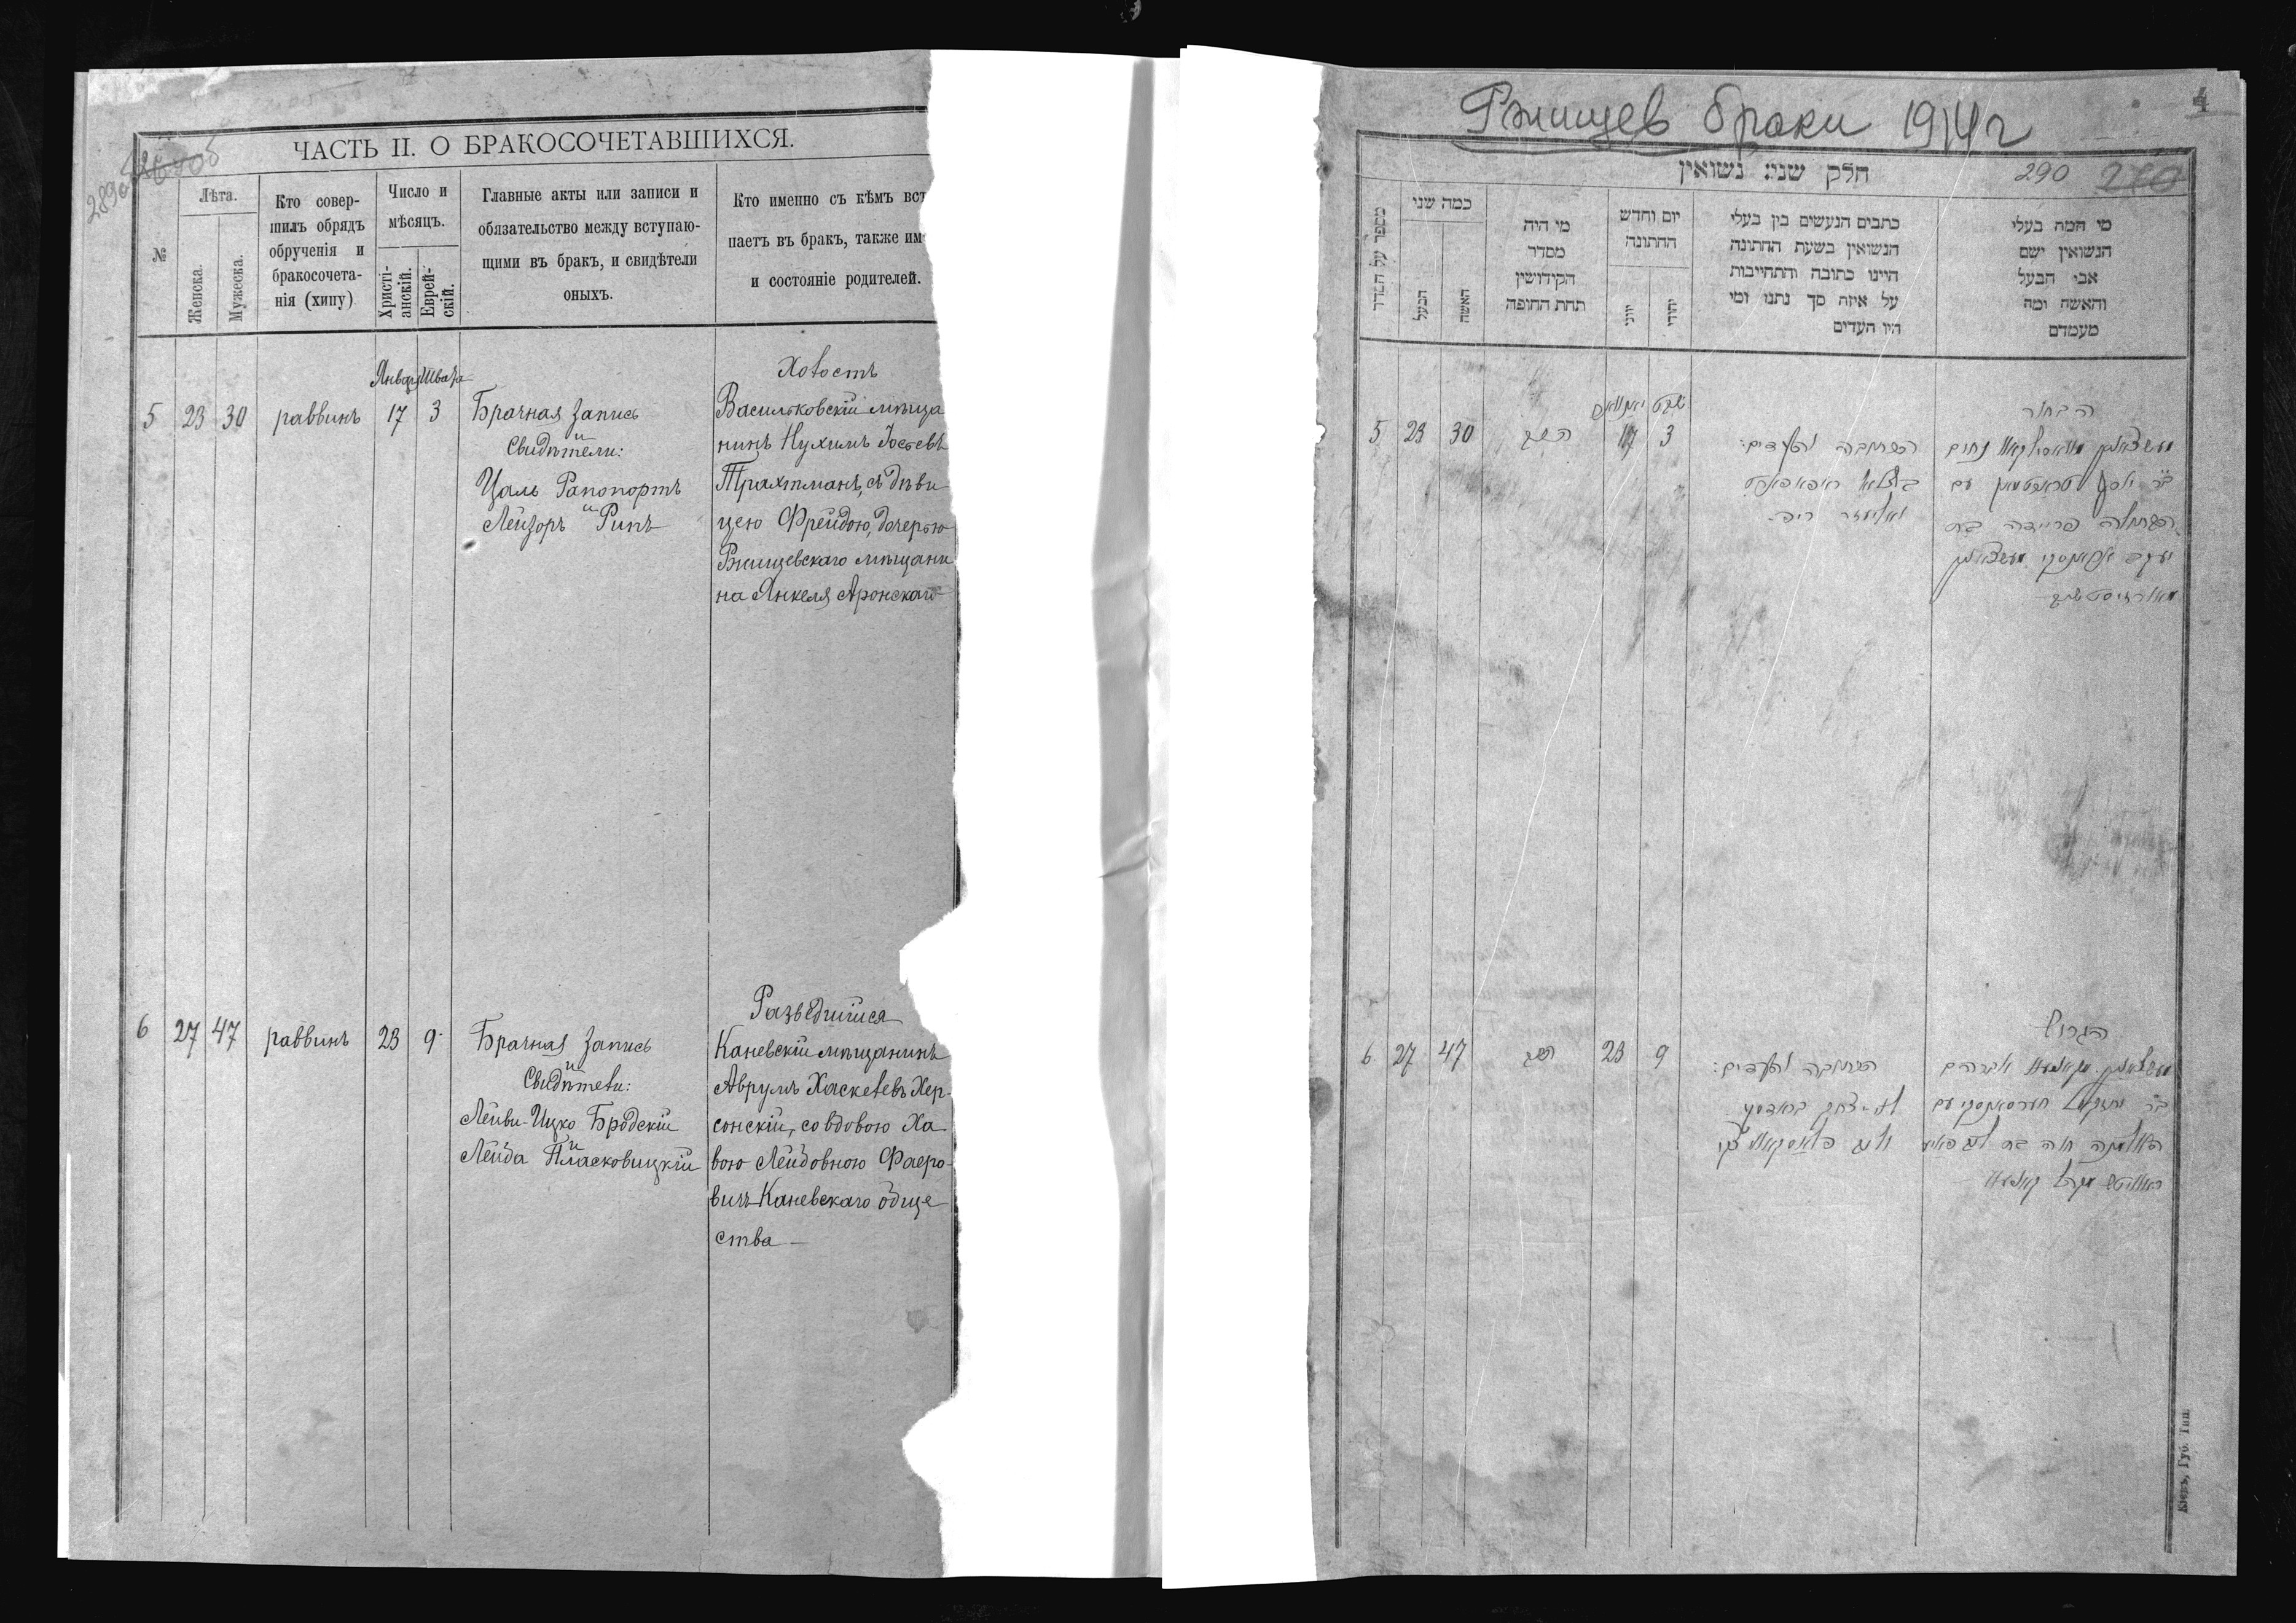 289об
ЧАСТЬ II. О БРАКОСОЧЕТАВШИХСЯ.
№
Лѣта.
Женска.
Мужеска.
Кто совер-
шилъ обрядъ
обрученія и
бракосочета-
нія (хипу)
Число и
мѣсяцъ.
Христі-
анскій.
Еврей-
скій.
Главные акты или записи и
обязательство между вступаю-
щими въ бракъ, и свидѣтели
оныхъ.
Кто именно съ кѣмъ вст
паетъ въ бракъ, также им
и состояніе родителей.
Январь Швата
5 23 30 раввинъ 17 3
Брачная запись
и
Свидѣтели:
Цаль Рапопортъ
и
Лейзоръ Рипъ
Холостъ
Васильковскій мѣща
нинъ Нухимъ Іосьевъ
Трахтманъ, съ дѣви
цею Фрейдою, дочерью
Ржищевскаго мѣщани
на Янкеля Аронскаго
6 27 47 раввинъ 23 9
Брачная запись
и
Свидѣтели:
Лейви-Ицко Бродскій
и
Лейба Пласковицкій
Разведшійся
Каневскій мѣщанинъ
Аврумъ Хаскелевъ Хер-
сонскій, со вдовою Ха-
вою Лейбовною Фаеро-
вичъ Каневскаго обще
ства
Ржищев браки 1914г
290
חלק שני: נשואין
מספר על הסדר
כמה שני
הבעל
האשה
מי היה
מסדר
הקידושין
תחת החופה
יום וחדש
החתונה
יוני
יהודי
כתבים הנעשים בין בעלי
הנשואין בשעת החתונה
היינו כתובה והתחייבות
על איזה סך נתנו ומי
היו העדים
מי המה בעלי
הנשואין ושם
אבי הבעל
והאשה ומה
מעמדם
5 23 30 הרב 17 3
הכתובה והעדים:
בצלאל ראפאפארט
ואליעזר ריפ
הבחור
נחום
עם
הבתולה פריידה בת
יעקב
6 27 47 הרב 23 9
הכתובה והעדים:
הגרוש
אברהם
בר יחזקאל חערסאנסקי עם
האלמנה חוה בת
Кіевъ, Губ. Тип.